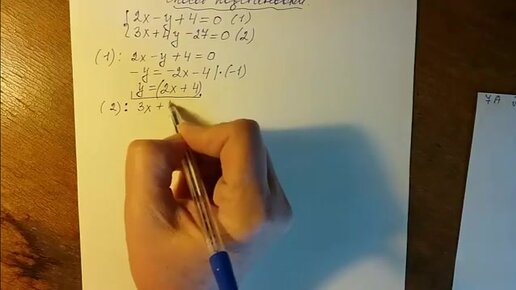 Способ подстановки.
{2x - y + 4 = 0 (1)
{3x + 4y - 27 = 0 (2)
(1): 2x - y + 4 = 0
-y = -2x - 4 | · (-1)
y = (2x + 4)
(2): 3x +
7А